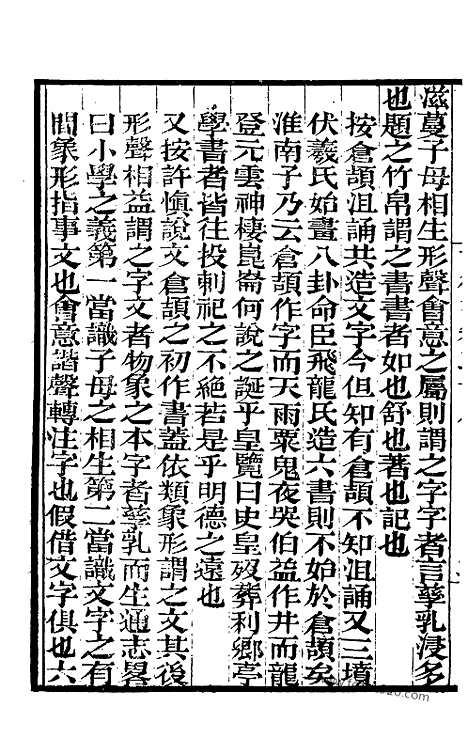 滋蔓子母相生形聲會意之屬則謂之字字者言孳乳浸多
也題之竹帛謂之書書者如也舒也著也記也
按倉頡沮誦共造文字今但知有倉頡不知沮誦又三墳
伏羲氏始畫八卦命臣飛龍氏造六書則不始於倉頡矣
淮南子乃云倉頡作字而天雨粟鬼夜哭伯益作井而龍
登元雲神棲崑崙何說之誕乎皇覽曰史皇歿葬利鄉亭
學書者皆往投刺祀之不絕若是乎明德之遠也
又按許愼說文倉頡之初作書蓋依類象形謂之文其後
形聲相益謂之字文者物象之本字者孳乳而生通志畧
曰小學之義第一當識子母之相生第二當識文字之有
間象形指事文也會意諧聲轉注字也假借文字俱也六